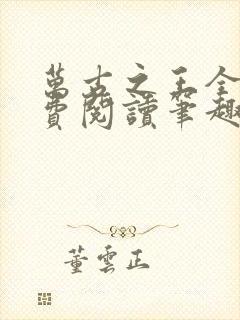 萬古之王全
費閱讀筆趣
董雲正